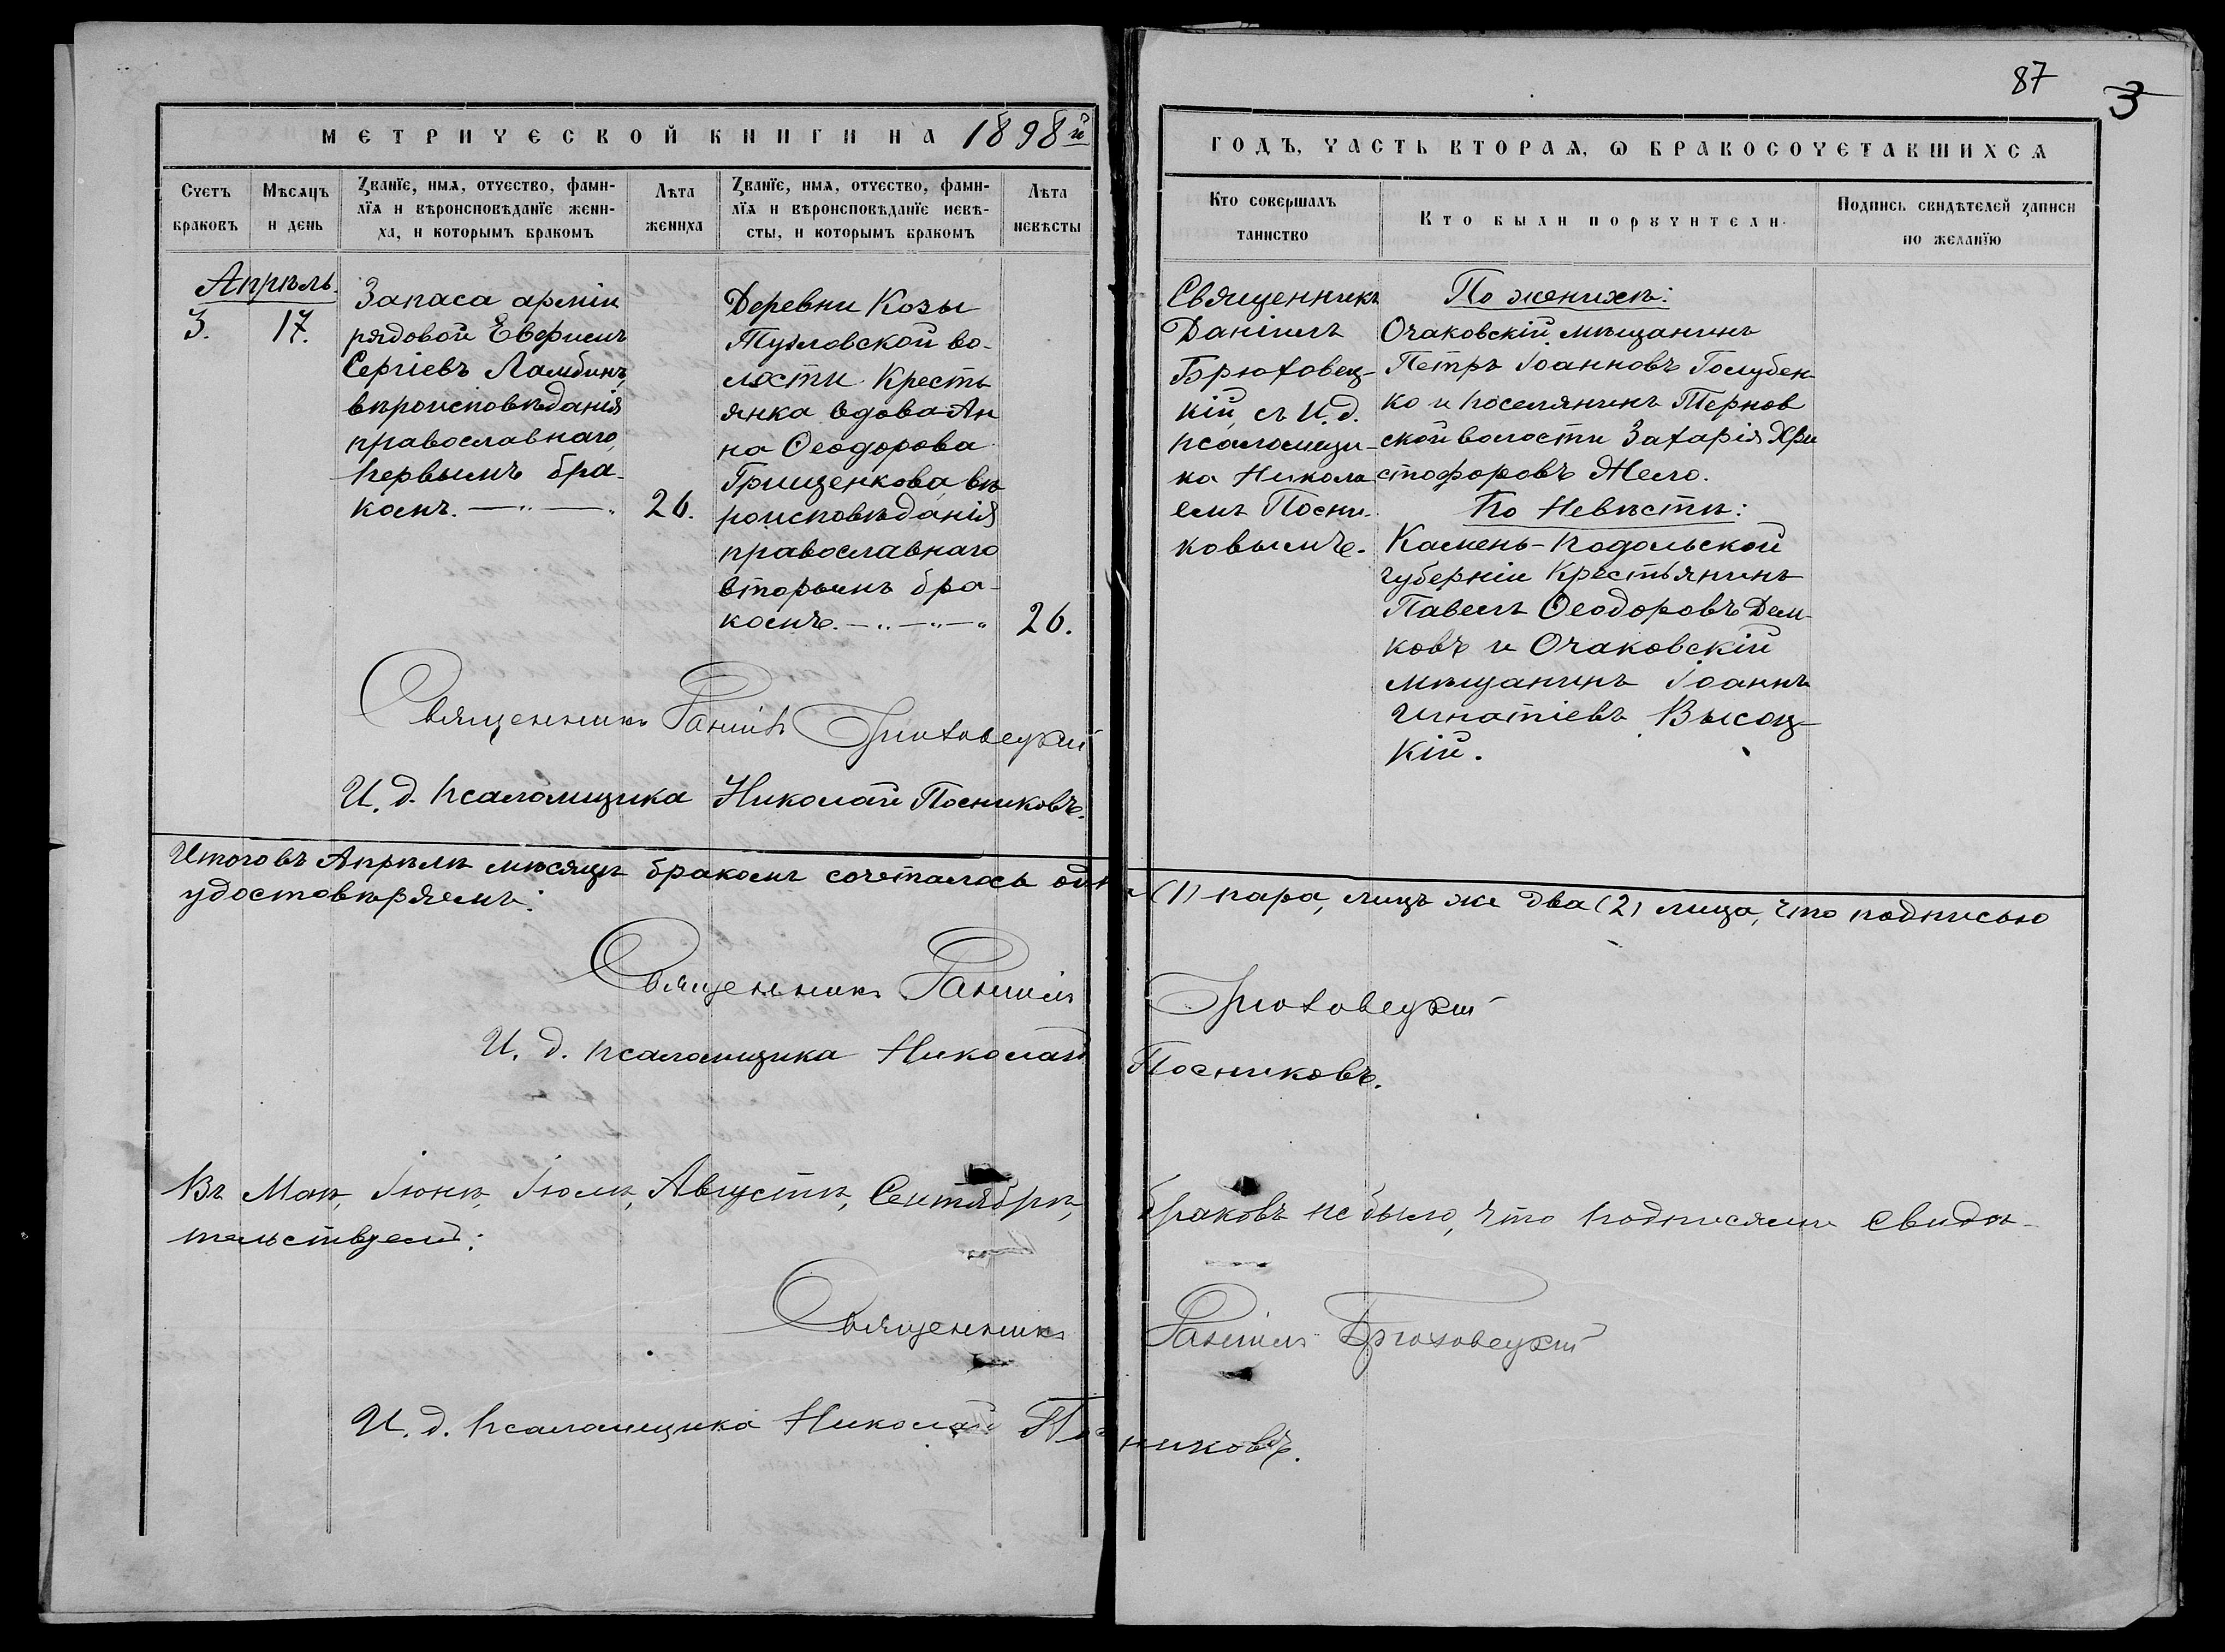 87
3
МЕТРИЧЕСКОЙ КНИГИ НА 1898й
ГОДЪ, ЧАСТЬ ВТОРАѦ, Ѡ БРАКОСОЧЕТАВШИХСѦ
Счетъ браковъ
Мѣсѧцъ и день
Званїе, имѧ, отчество, фами-
лїѧ и вѣроисповѣданїе жени-
ха, и которымъ бракомъ
Лѣта жениха
Званїе, имѧ, отчество, фами-
лїѧ и вѣроисповѣданїе невѣ-
сты, и которымъ бракомъ
Лѣта невѣсты
Кто совершалъ
таинство
Кто были порꙋчители.
Подпись свидѣтелей записи
по желанїю
Апрѣль.
3. 17.
Запаса арміи
рядовой Евфимъ
Сергіевъ Ламбинъ,
вѣроисповѣданія
православнаго,
первымъ бра-
комъ.
26.
Деревни Козы
волости Кресть
янка вдова Ан
на Ѳеодорова
Грищенкова, вѣ
роисповѣданія
православнаго
вторымъ бра-
комъ.
26.
Священникъ
Даніилъ
Брюховец-
кій, съ И. д.
псаломщи-
ка Никола
емъ Посни-
ковымъ.
По женихѣ:
Очаковскій мѣщанинъ
Петръ Іоанновъ Голубен-
ко и поселянинъ Тернов
ской волости Захарія Хри
стофоровъ Жело.
По Невѣстѣ:
Камень-Подольской
губерніи Крестьянинъ
Павелъ Ѳеодоровъ Дем-
ковъ и Очаковскій
мѣщанинъ Іоаннъ
Игнатіевъ Высоц-
кій.
Священникъ Даніилъ Брюховецкій
И. д. псаломщика Николай Посниковъ.
Итого въ Апрѣлѣ мѣсяцѣ бракомъ сочеталось одна (1) пара, лицъ же два (2) лица, что подписью
удостовѣряемъ:
Священникъ Даніилъ Брюховецкій
И. д. псаломщика Николай Посниковъ.
Въ Маѣ, Іюнѣ, Іюлѣ, Августѣ, Сентябрѣ, браковъ не было, что подписями свидѣ-
тельствуемъ:
Священникъ Даніилъ Брюховецкій
И. д. псаломщика Николай Посниковъ.